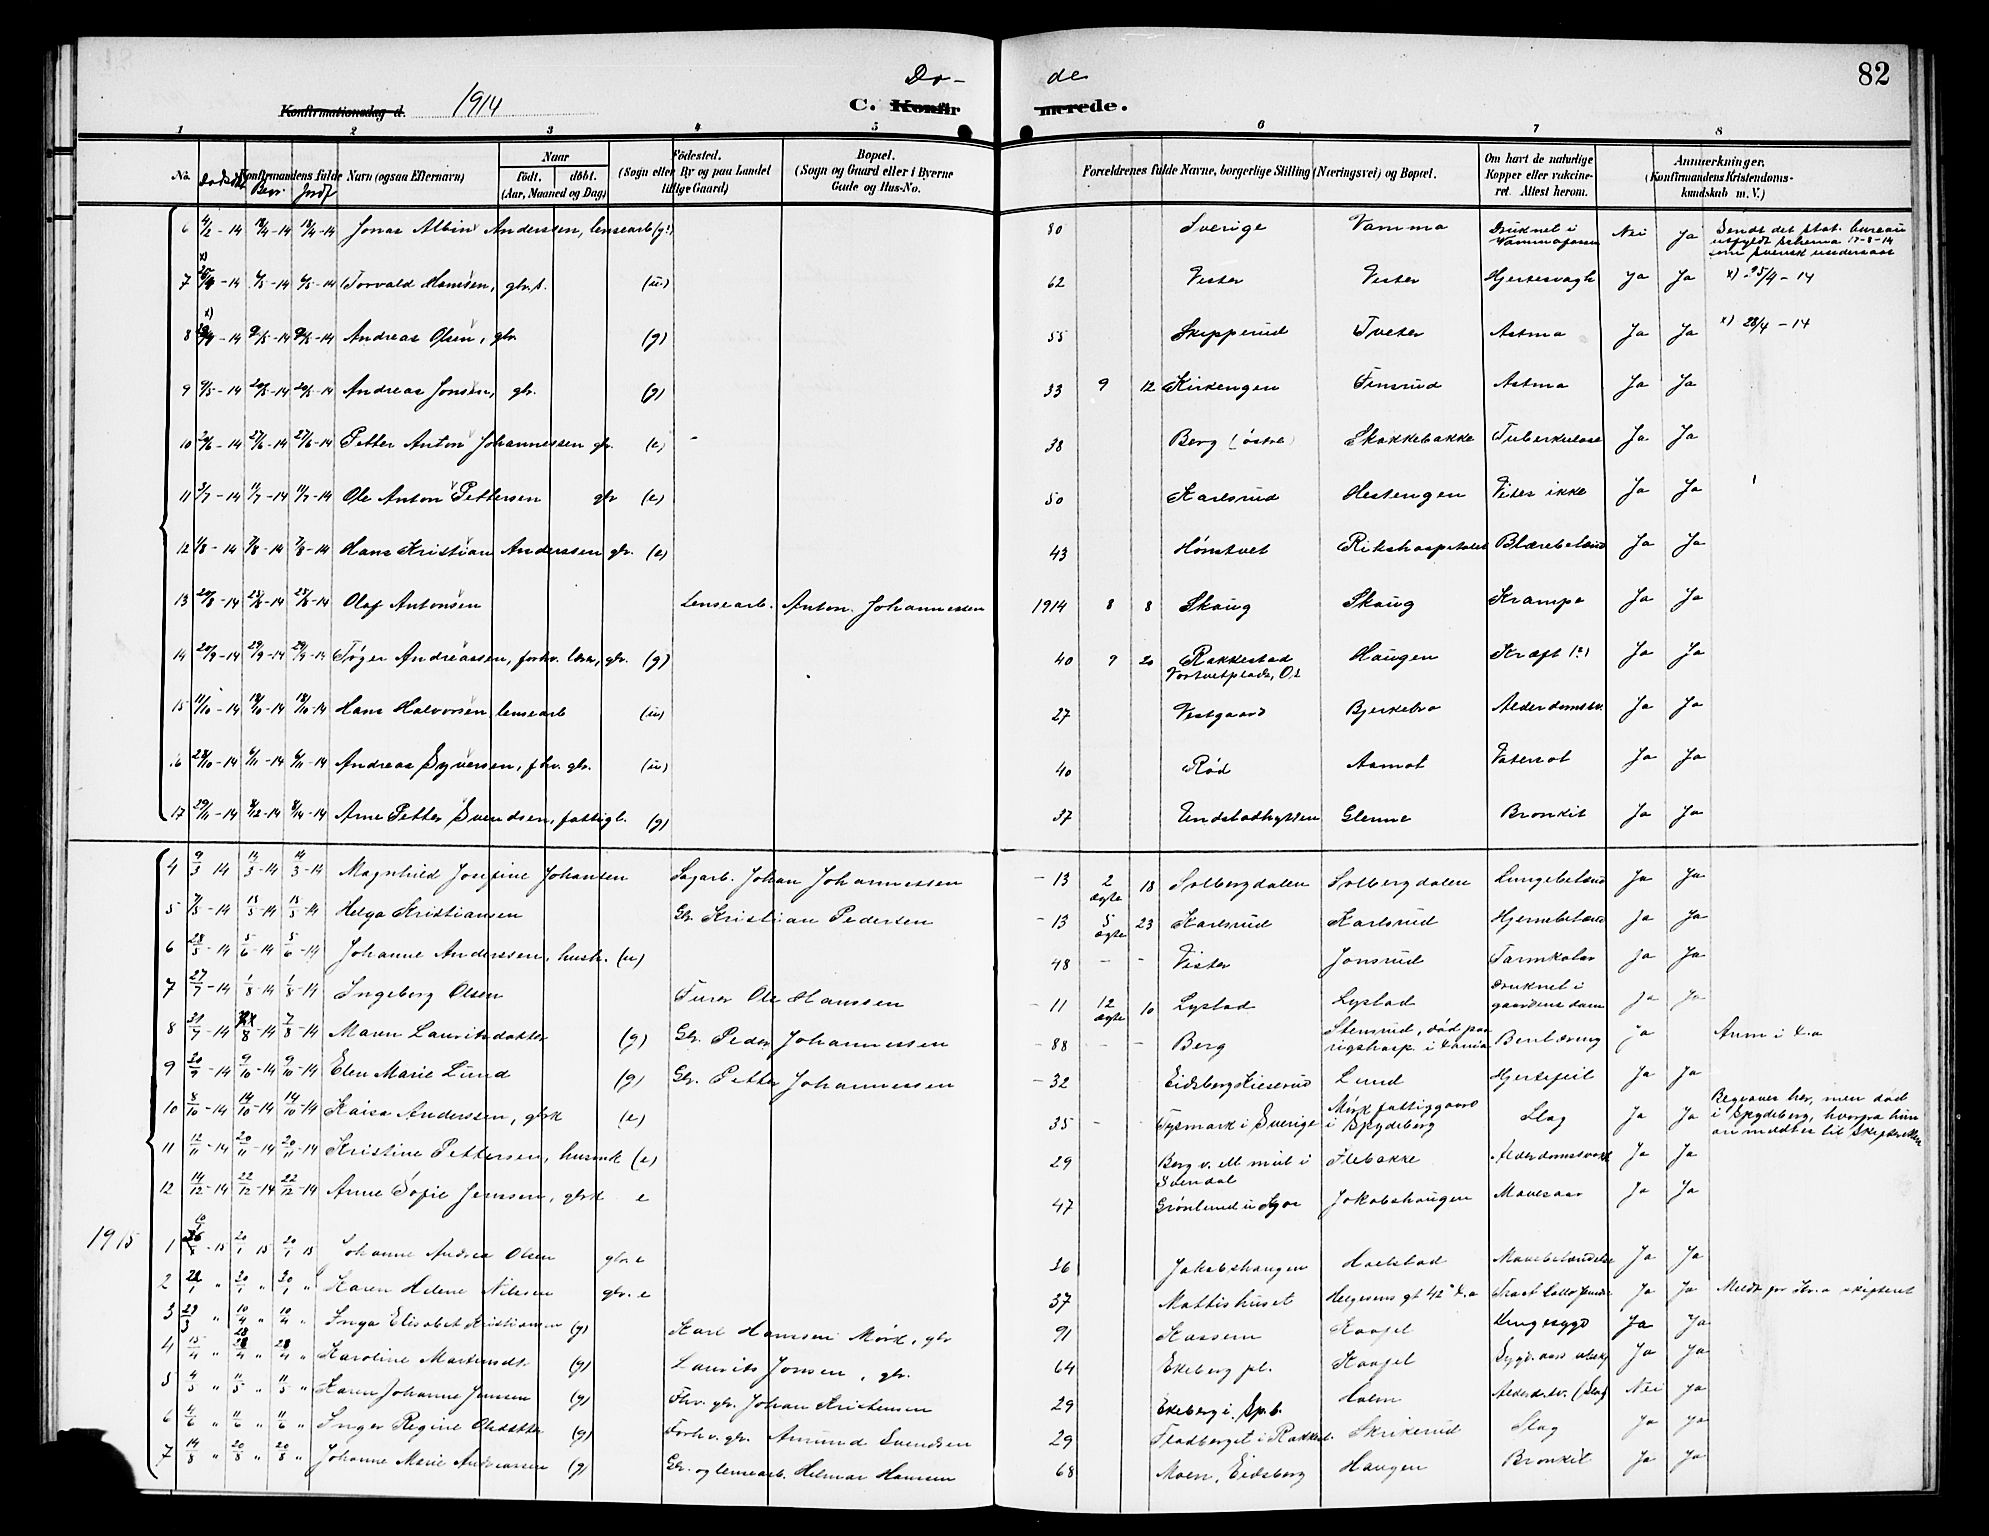 82
Dö- de
Konfirmationsdag d. 1914 C. Konfir merede.
1 2 3 4 5 6 7 8
No. Dødsdt. Begr. Jordf. Konfirmandens fulde Navn (ogsaa Efternavn)
Naar født. døbt. (Aar, Maaned og Dag)
Fødested. (Sogn eller By og paa Landet tillige Gaard)
Bopæl. (Sogn og Gaard eller i Byerne Gade og Hus-No.
Forældrenes fulde Navne, borgerlige Stilling (Næringsvei) og Bopæl.
Om havt de naturlige Kopper eller vakcineret. Attest herom.
Anmærkninger. (Konfirmandens Kristendomskundskab m. V.)
6 4/2-14 18/4-14 18/4-14 Jonas Albin Anderssen, lensearb (g?) 80 Sverige Vamma Druknet i Vammafossen Nei Ja Sendt det stat. bureau utfyldt schema 17-8-14 som svensk undersaat
7 x) -14 6/5-14 6/5-14 Torvald Hansen, gbr.s. (u) 62 Vister Vister Hjertesvagh Ja Ja x) 25/4-14
8 x) -14 9/5-14 9/5-14 Andreas Olsen, gbr. (g) 55 Skipperud Tveter Astma Ja Ja x) 28/4-14
9 9/5-14 20/5-14 20/5-14 Andreas Jonsen, gbr. (g) 33 9 12 Kirkengen Finsrud Astma Ja Ja
10 20/6-14 27/6-14 27/6-14 Petter Anton Johannessen gbr. (e) 38 Berg (østre) Skakkebakke Tuberkulose Ja Ja
11 3/7-14 11/7-14 11/7-14 Ole Anton Pettersen gbr (e) 50 Karlsrud Hestengen Vites ikke Ja Ja
12 1/8-14 7/8-14 7/8-14 Hans Kristian Anderssen gbr. (e) 43 Hønstvet Rikshospitalet Blærebetænd Ja Ja
13 20/8-14 25/8-14 25/8-14 Olaf Antonsen Lensearb. Anton Johannessen 1914 8 8 Skaug Skaug Krampe Ja Ja
14 20/9-14 29/9-14 29/9-14 Tøger Andreassen, forhv. lærer, gbr. (g) 40 9 20 Rakkestad Haugen Kræft (?) Ja Ja
15 11/10-14 18/10-14 18/10-14 Hans Halvorsen lensearb (u) 27 Vestgaard Bjerkebro Alderdomssv. Ja Ja
16 28/10-14 6/11-14 6/11-14 Andreas Syversen, fhv. gbr. (u) 40 Rød Aamot Vatersot Ja Ja
17 29/11-14 8/12-14 8/12-14 Arne Petter Svendsen, fattigl. (g) 37 Glenne Bronkit Ja Ja
4 9/3-14 14/3-14 14/3-14 Magnhild Josefine Johansen Sagarb. Johan Johannessen -13 2 ægte 18 Solbergdalen Solbergdalen Lungebetænd Ja Ja
5 7/5-14 13/5-14 13/5-14 Helga Kristiansen Gbr. Kristian Pedersen -13 5 ægte 23 Karlsrud Karlsrud Hjernebetænd Ja Ja
6 28/5-14 5/6-14 5/6-14 Johanne Anderssen, hush. (u) 48 - - Vister Jonsrud Tarmkatar Ja Ja
7 27/7-14 1/8-14 1/8-14 Ingeborg Olsen Furer Ole Hanssen -11 12 ægte 10 Lystad Lystad Druknet i gaardens dam Ja Ja
8 31/7-14 8-14 7/8-14 Maren Lauritsdatter (g) Gbr. Peder Johannessen -88 - - Berg Stensrud, død paa rigshosp. i Kania Benbæring Ja Anm i K.a
9 20/9-14 9/10-14 9/10-14 Elen Marie Lund (g) Gbr. Petter Johannessen -32 Eidsberg Kieserud Lund Hjertefeil Ja Ja
10 8/10-14 14/10-14 14/10-14 Kaisa Anderssen, gbrk (e) 35 - Tysmark i Sverige Mørk fattiggaard i Spydeberg Slag Ja Ja Begraves her, men død i Spydeberg, hvorfra hun anmeldtes til Skifteretten
11 12/11-14 20/11-14 20/11-14 Kristine Pettersen, husmk (e) 29 Berg v. ell mül i Svendal Flebakke Alderdomssvakh Ja Ja
12 14/12-14 22/12-14 22/12-14 Anne Sofie Jenssen, gbrk e 47 Jakobshaugen Mavesaar Ja Ja
1915 1 10/1 15 20/1 15 20/1 15 Johanne Andrea Olsen gbr. e 26 Jakobshaugen Haslestad Mavebetændelse Ja Ja
2 22/1 " 30/1 " 30/1 " Karen Helene Nilssen gbr. e 37 Mattishuset Helgesens gt 42 K.a Ja Ja Meldt for Kr.a skifteret
3 29/3 " 10/4 " 10/4 " Inga Elisabet Kristiansen (g) Karl Hanssen Mørk, gbr 91 Kassem Kaapel Lungesyge Ja Ja
4 15/4 " 28/4 " 28/4 " Karoline Martinsdt. (g) Laurits Jonsen, gbr. 64 Ekeberg pl. Kaapel Ja Ja
5 4/5 " 11/5 " 11/5 " Karen Johanne Jenssen (g) Fhv. gbr. Johan Kristensen 29 Ekeberg i Sp.b. Holm Alderd.sv. (Slag) Nei Ja
6 4/6 " 11/6 " 11/6 " Inger Regine Olsdatter (g) Forhv. gbr. Amund Svendsen 29 Fladberget i Rakkest. Skrikerud Slag Ja Ja
7 14/8 " 20/8 " 20/8 " Johanne Marie Andreassen (g) Gbr. og lensearb. Helmar Hansen 68 Moen, Eidsberg Haugen Bronkit Ja Ja